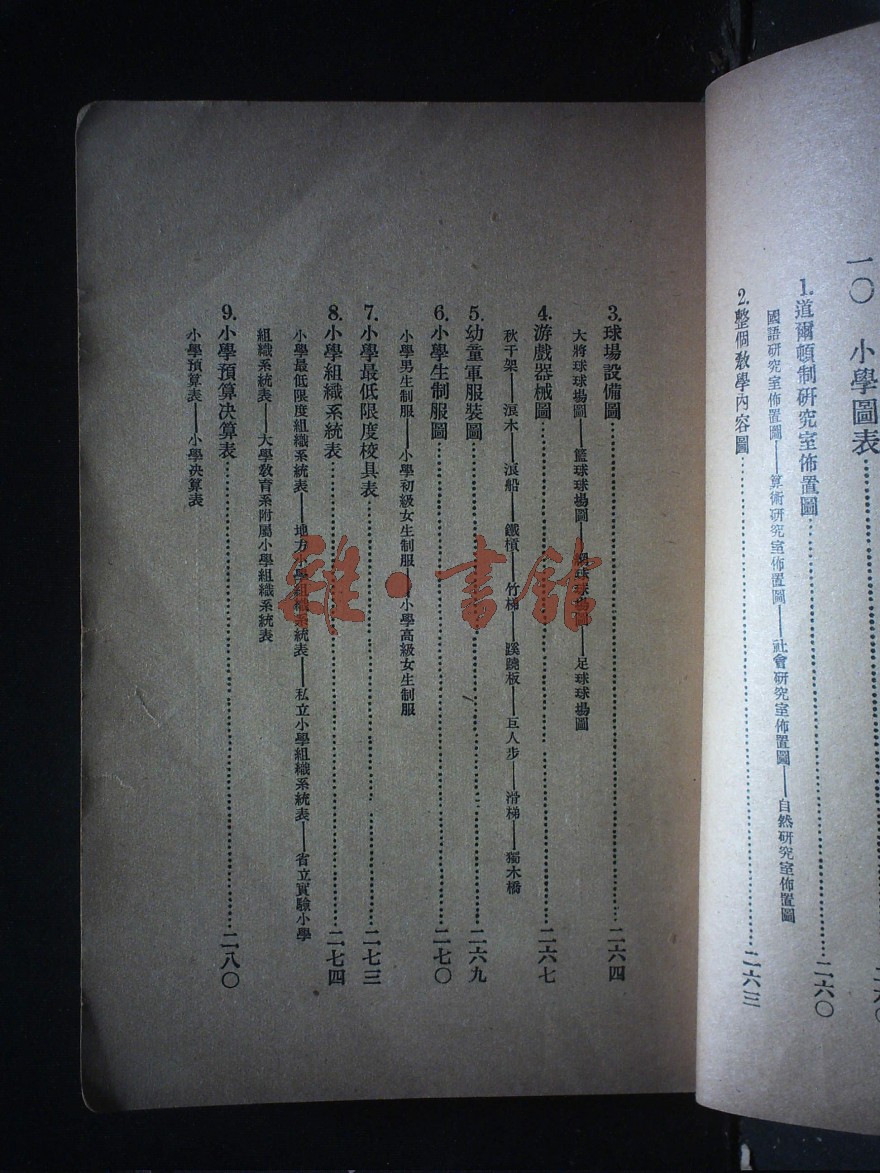 一〇　小學圖表……二六〇
1. 道爾頓制研究室佈置圖……二六〇
國語研究室佈置圖——算術研究室佈置圖——社會研究室佈置圖——自然研究室佈置圖
2. 整個教學內容圖……二六三
3. 球場設備圖……二六四
大將球球場圖——籃球球場圖——網球球場圖——足球球場圖
4. 游戲器械圖……二六七
秋千架——浪木——浪船——鐵槓——竹梯——蹊蹺板——巨人步——滑梯——獨木橋
5. 幼童軍服裝圖……二六九
6. 小學生制服圖……二七〇
小學男生制服——小學初級女生制服——小學高級女生制服
7. 小學最低限度校具表……二七三
8. 小學組織系統表……二七四
小學最低限度組織系統表——地方小學組織系統表——私立小學組織系統表——省立實驗小學
組織系統表——大學教育系附屬小學組織系統表
9. 小學預算決算表……二八〇
小學預算表——小學決算表
雜·書館